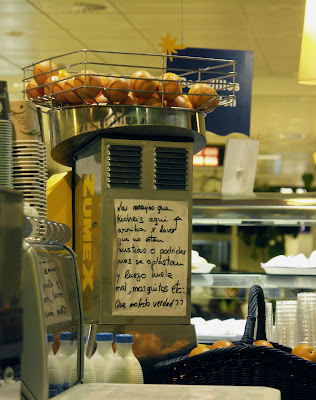 ZUMEX
Las naranjas que
lucheis aqui ↑
arriba x favor
que no esten
mustias o podridas
que se aplastan
y luego huele
mal, mosquitas etc:
Que mofeta verdad??